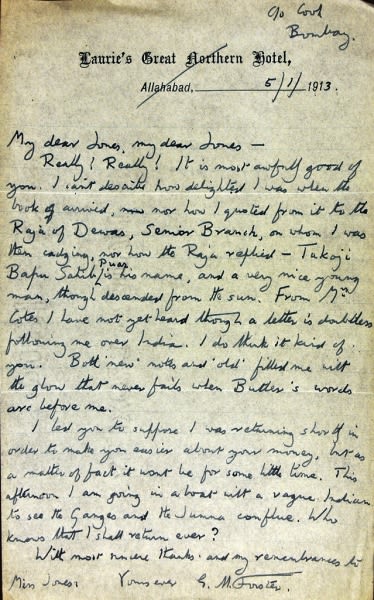 c/o Cook
Bombay.
Laurie's Great Northern Hotel,
Allahabad, 5/1/1913.
My dear Jones, my dear Jones –
Really! Really! It is most awfully good of
you. I can't describe how delighted I was when the
book arrived, nor how I quoted from it to the
Raja of Dewas, Senior Branch, on whom I was
then cadging, nor how the Raja replied – Tukoji
Puar
Bapu Sahib is his name, and a very nice young
man, though descended from the sun. From Mrs
Cotes I have not yet heard though a letter is doubtless
following me over India. I do think it kind of
you. Both 'new' notes and 'old' filled me with
the glow that never fails when Butler's words
are before me.
I led you to suppose I was returning shortly in
order to make you easier about your money, but as
a matter of fact it wont be for some little time. This
afternoon I am going in a boat with a vague Indian
to see the Ganges and the Jumna conflue. Who
knows that I shall return ever?
With most sincere thanks. and my remembrances to
Miss Jones: Yours ever E. M. Forster.